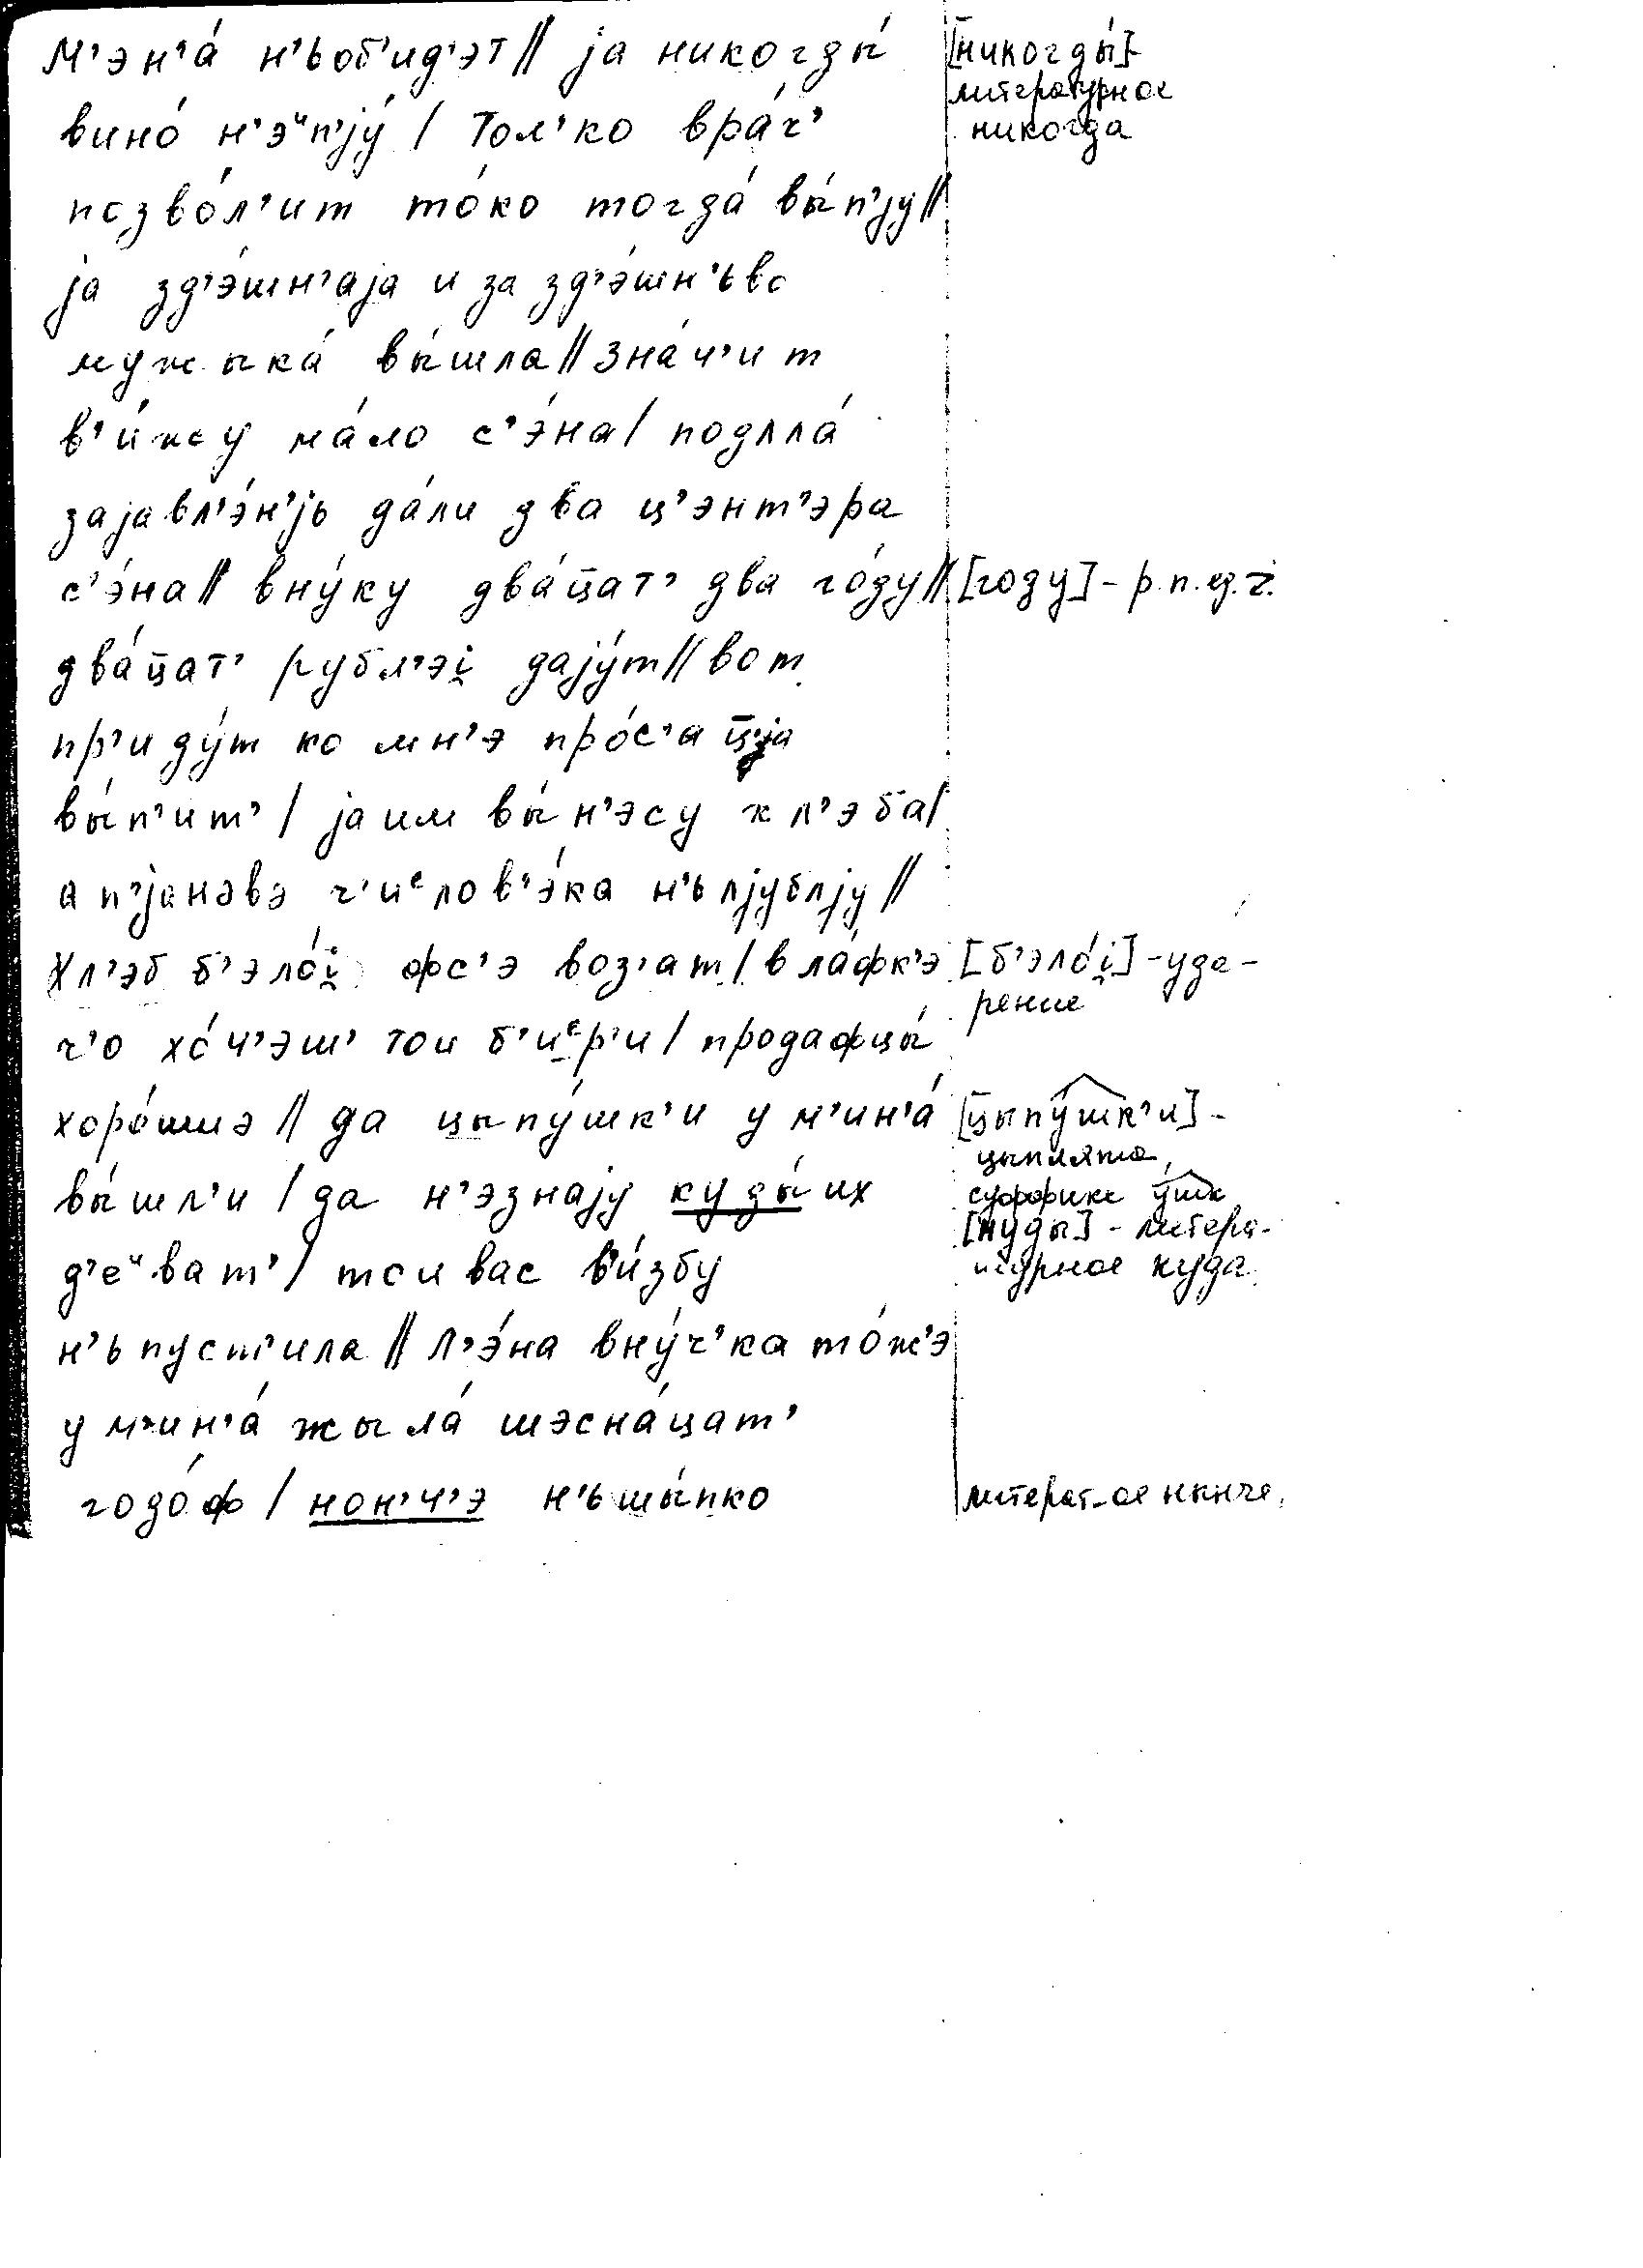 М'эн'а́ н'ьоб'ид'эт // jа никогды́
вино́ н'эᵘп'jу́ / Тол'ко вра́ч'
позво́л'ит то́ко тогда́ вы́п'jу //
jа зд'э́шн'аjа и за зд'э́шн'ьво
мужыка́ вы́шла // зна́ч'ит
в'и́жу ма́ло с'э́на / подала́
заjавл'э́н'jь да́ли два ц'энт'эра
с'э́на // вну́ку два́ц̄ат' два го́ду //
два́ц̄ат' рубл'эi̯ даjу́т // вот
пр'иду́т ко мн'э про́с'а
вы́п'ит' / jа им вы́н'эсу хл'эба /
а п'jанэвэ ч'иᵉлов'э́ка н'ьлjублjу //
Хл'эб б'эло́i̯ фс'э воз'ат / в ла́фк'э
ч'о хо́ч'эш' тои б'иᵉр'и / продафцы́
хоро́шиэ // да цыпу́шк'и у м'ин'а́
вы́шл'и / да н'эзнаjу куды́ их
д'еᵘват' / тои вас в'и́збу
н'ьпуст'ила // Л'э́на вну́ч'ка то́ж'э
у м'ин'а́ жыла́ шэсна́цат'
годо́ф / нон'ч'э н'ьшы́пко
[никогды́]-
литературное
никогда
[году] - р.п.ед.ч.
[б'эло́i̯] - уда-
рение
[цыпу́шк'и] -
цыплята,
суффикс ушк
[куды] - литера-
турное куда
литерат-ое нынче.